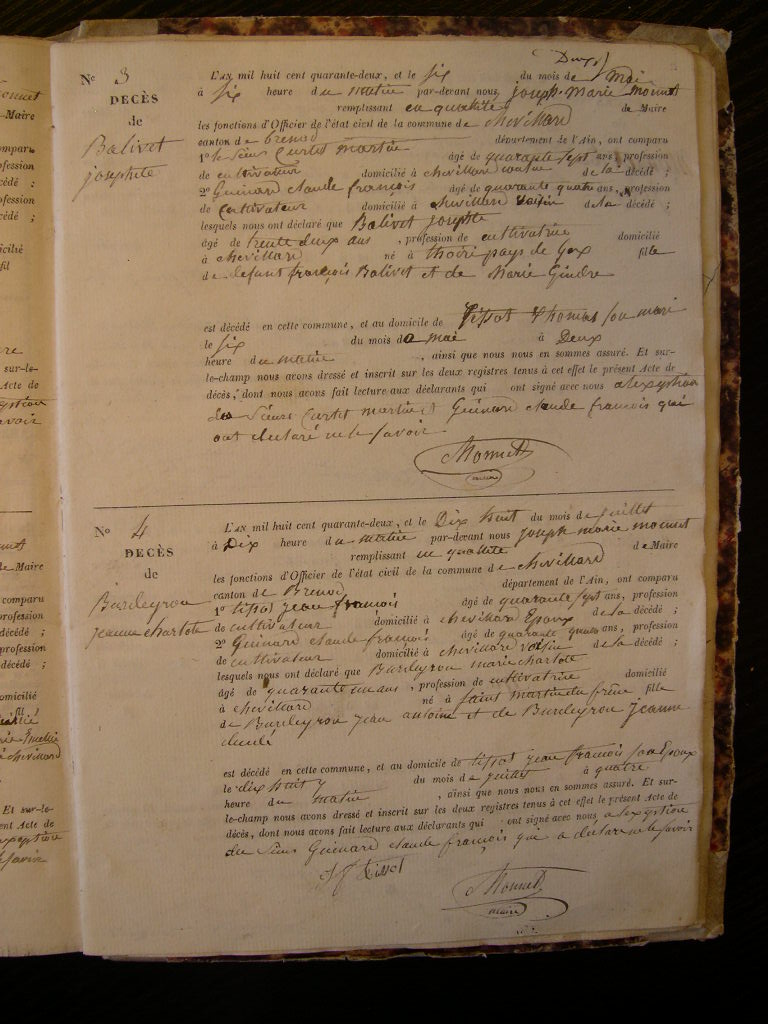 Nº 3
DECÈS
de
Balivet
josephte
L'AN mil huit cent quarante-deux, et le six du mois de Mai
à six heure du matin par-devant nous joseph Marie monnet
remplissant en qualité de Maire
les fonctions d'Officier de l'état civil de la commune de chevillard
canton de brenod département de l'Ain, ont comparu
1º le sieur Curtet martin âgé de quarante sept ans, profession
de cultivateur domicilié à chevillard voisin de la décédé ;
2º Guinard claude françois âgé de quarante quatre ans, profession
de Cultivateur domicilié à chevillard voisin de la décédé ;
lesquels nous ont déclaré que Balivet josephte
âgé de trente deux ans , profession de cultivatrice domicilié
à chevillard né à thoiri pays de Gex fille
de defunt françois Balivet et de Marie Gindre
est décédé en cette commune, et au domicile de Tissot Thomas son mari
le six du mois de mai à Deux
heure du matin , ainsi que nous nous en sommes assuré. Et sur-
le-champ nous avons dressé et inscrit sur les deux registres tenus à cet effet le présent Acte de
décès, dont nous avons fait lecture aux déclarants qui ont signé avec nous a lexeption
des Sieurs Curtet martin et Guinard claude francois qui
ont declaré ne le savoir
Monnet
maire
Nº 4
DECÈS
de
Burdeyron
jeanne charlote
L'AN mil huit cent quarante-deux, et le Dix huit du mois de juillet
à Dix heure du matin par-devant nous joseph marie monnet
remplissant en qualité de Maire
les fonctions d'Officier de l'état civil de la commune de chevillard
canton de Brenod département de l'Ain, ont comparu
1º tissot jean francois âgé de quarante sept ans, profession
de cultivateur domicilié à chevillard Epoux de la décédé ;
2º Guinard claude françois âgé de quarante quatre ans, profession
de cultivateur domicilié à chevillard voisin de la décédé ;
lesquels nous ont déclaré que Burdeyron marie charlote
âgé de quarante un ans , profession de cultivatrice domicilié
à chevillard né à saint martin du frêne fille
de Burdeyron jean antoine et de Burdeyron jeanne
est décédé en cette commune, et au domicile de tissot jean francois son Epoux
le dix huit du mois de juillet à quatre
heure du matin , ainsi que nous nous en sommes assuré. Et sur-
le-champ nous avons dressé et inscrit sur les deux registres tenus à cet effet le présent Acte de
décès, dont nous avons fait lecture aux déclarants qui ont signé avec nous a lexeption
du Sieur Guinard claude françois qui a declare ne le savoir
Tissot
Monnet
maire